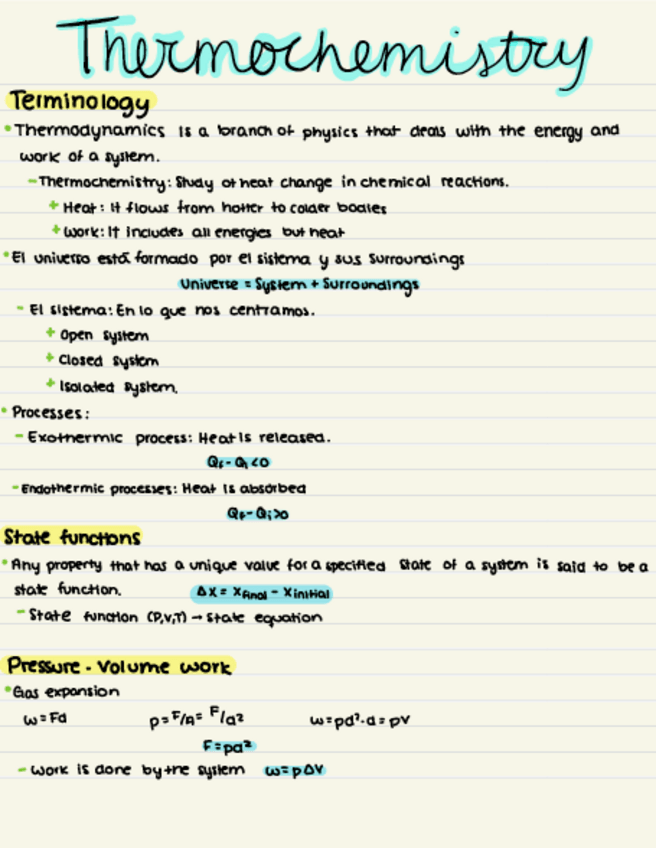 Thermochemistry
Terminology
• Thermodynamics is a branch of physics that deals with the energy and
work of a system.
- Thermochemistry: Study of heat change in chemical reactions.
+ Heat: It flows from hotter to colder bodies
+ Work: It includes all energies but heat
• El universo está formado por el sistema y sus surroundings
Universe = System + Surroundings
- El sistema: En lo que nos centramos.
+ Open system
+ Closed system
+ Isolated system.
• Processes:
- Exothermic process: Heat is released.
Qf - Qi < 0
- Endothermic processes: Heat is absorbed
Qf - Qi > 0
State functions
• Any property that has a unique value for a specified state of a system is said to be a
state function. ΔX = Xfinal - Xinitial
- State function (P,V,T) → State equation
Pressure - Volume work
• Gas expansion
w = Fd p = F/A = F/a² w = pa²·a = pV
F = pa²
- Work is done by the system w = pΔV